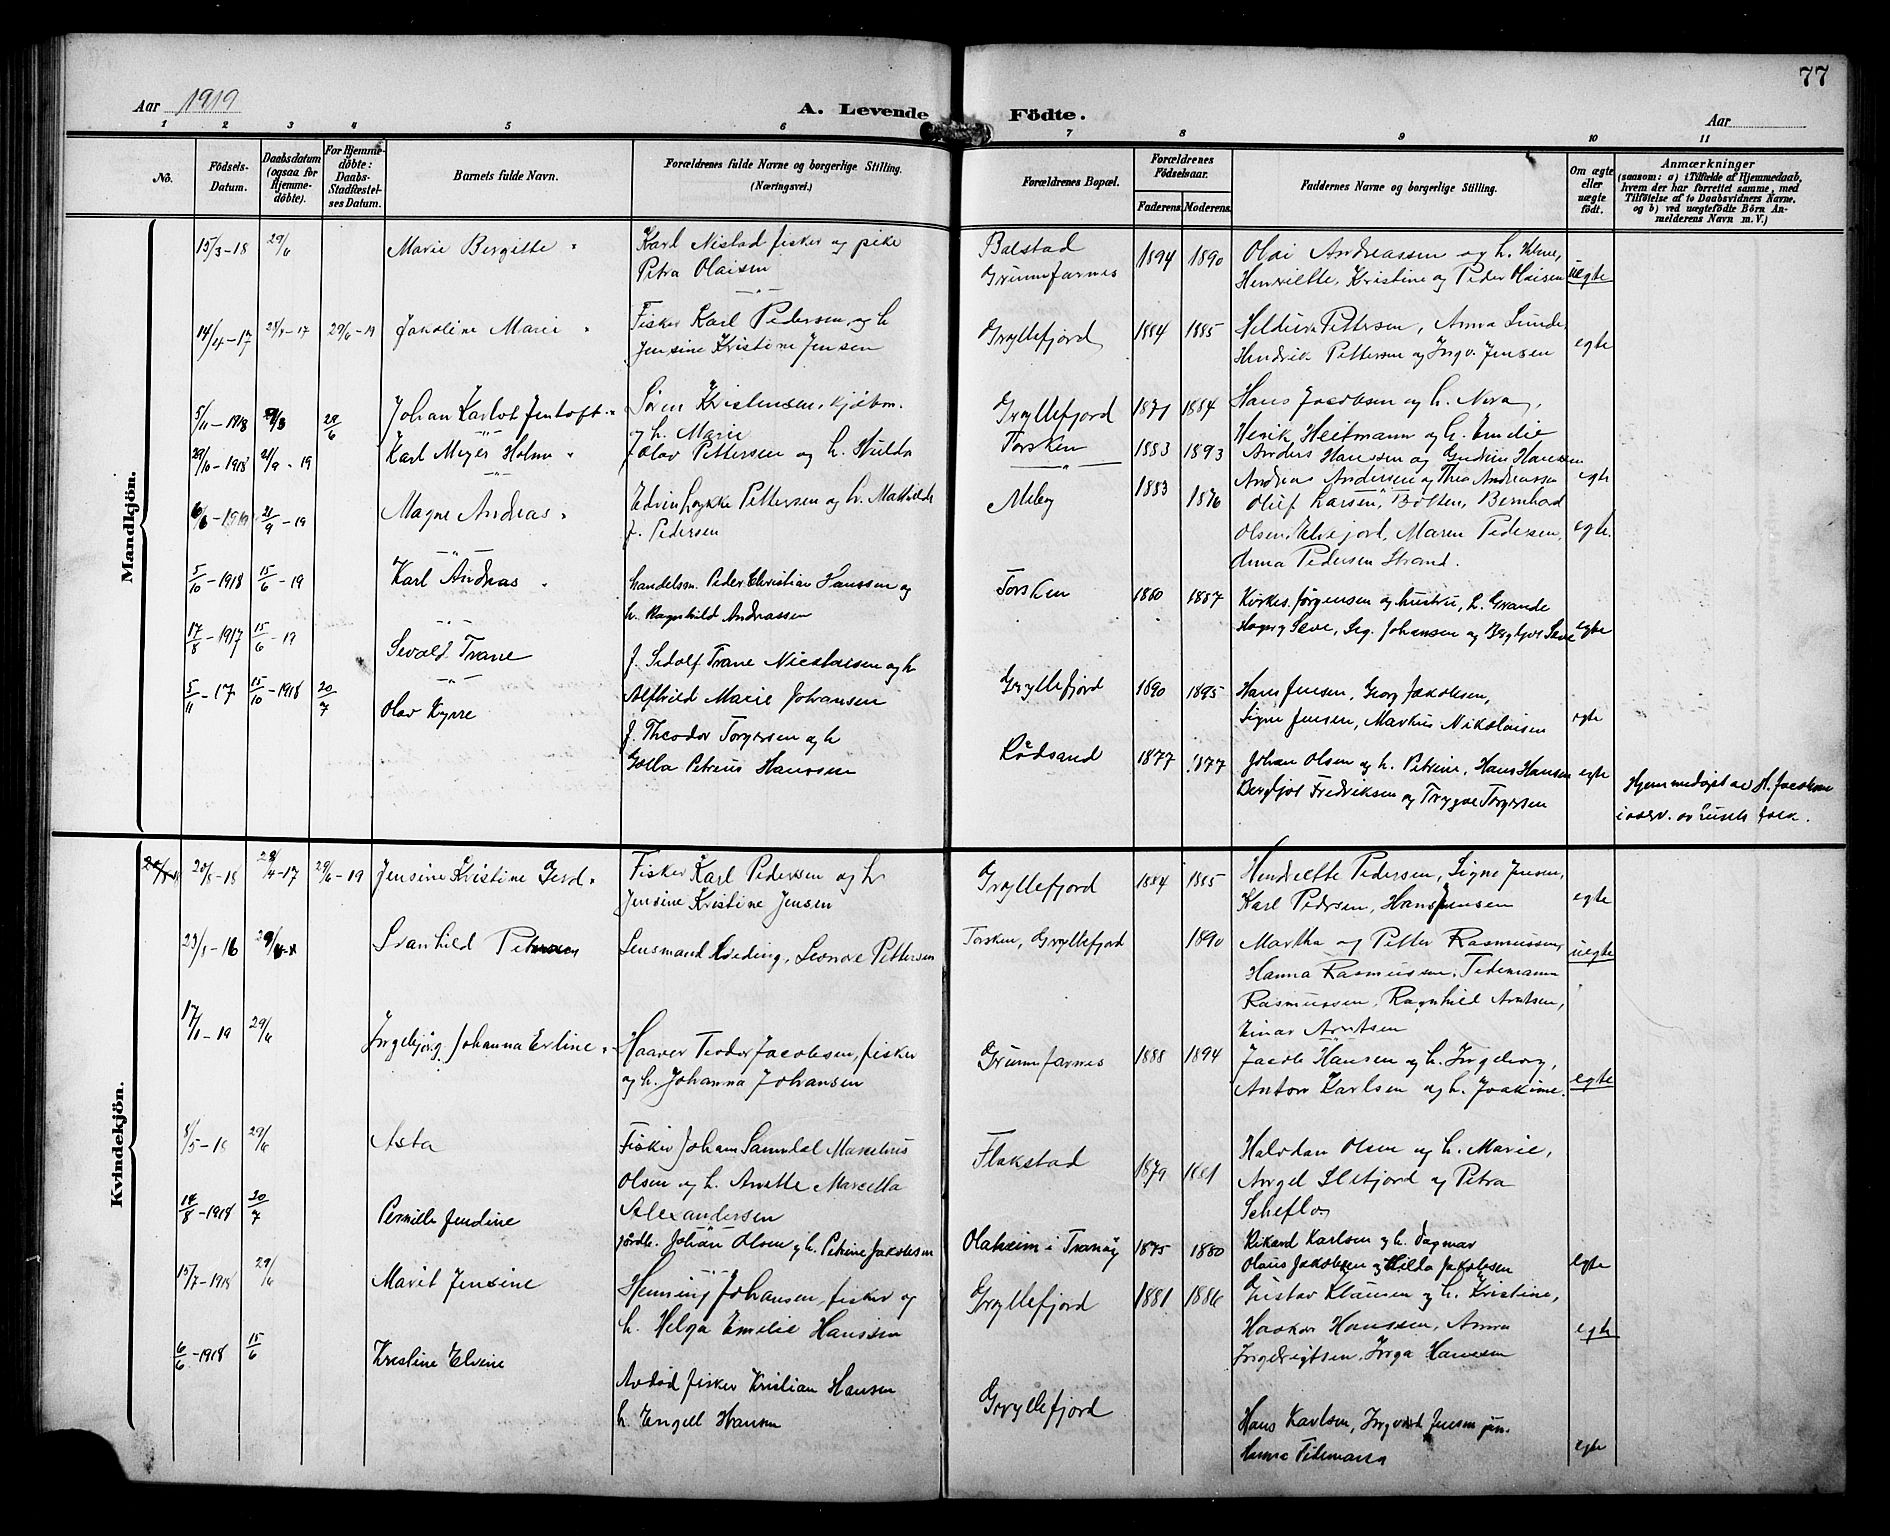 77
Aar 1919
A. Levende Födte.
Aar
1 2 3 4 5 6 7 8 9 10 11
No.
Födsels-Datum.
Daabsdatum (ogsaa for Hjemme-döbte).
For Hjemme-döbte: Daabs-Stadfæstel-ses Datum.
Barnets fulde Navn.
Forældrenes fulde Navne og borgerlige Stilling. (Næringsvei.)
Forældrenes Bopæl.
Forældrenes Födselsaar.
Faderens. Moderens.
Faddernes Navne og borgerlige Stilling.
Om ægte eller uægte födt.
Anmærkninger
(saasom: a) i Tilfælde af Hjemmedaab,
hvem der har forrettet samme, med
Tilföielse af to Daabsvidners Navne,
og b) ved uægtefödte Börn An-
melderens Navn m. V.)
Mandkjön.
15/3-18 29/6 Marie Bergitte Karl Nistad fisker og pike Balstad 1894 1890 Olai Andreassen og h.
Petra Olaisen Grunnfarnes Henriette, Kristine og Peder Olaisen uegte
14/4-17 28/4-17 29/6-19 Jakoline Marie Fisker Karl Pedersen og h Gryllefjord 1884 1885 Pettersen, Anna Lunde
Jensine Kristine Jensen Hendrik Pettersen og Ingv. Jensen egte
5/11-1918 29/6 Johan Karlot Jentoft Sören Kristensen, kjöbm. Gryllefjord 1871 1884 Hans Jacobsen og h. Nora,
og h. Marie Henrik Heitmann og h. Emelie
29/10-1918 21/9-19 Karl Meyer Holm Olav Pettersen og h. Hulda Torsken 1883 1893 Anders Hanssen og Gudrun Hansen
Andreas Andersen og Thea Andreassen egte
6/6-1919 21/9-19 Magne Andreas Edvin Lykke Pettersen og h. Mathilde Medby 1883 1876 Oluf Larsen, Botten, Bernhard
f. Pedersen Olsen, Elvejord, Maren Pedersen, egte.
Anna Pedersen Strand.
5/10-1918 15/6-19 Karl Andreas handelsm. Peder Christian Hanssen og Torsken 1860 1887 Kirkes. Jørgensen og hustru, L. Grande
h. Ragnhild Andreassen Johansen og Bergljot egte
17/8-1917 15/6-19 Sevald Trane f. Sedolf Trane Nicolaisen og h Gryllefjord 1890 1895 Hans Jensen, Georg Jakobsen,
Alfhild Marie Johansen Signe Jensen, Markus Nikolaisen egte
5/11-17 15/10-1918 20/7 Olav Kyrre f. Theodor Torgersen og h Rödsand 1877 1877 Johan Olsen og h. Petrine, Hans Hansen egte
Petrea Hanssen Bergljot Fredriksen og Trygve Torgersen
Hjemmedøpt av H. Jacobsen
Kvindekjön.
20/5-18 28/4-17 29/6-19 Jensine Kristine Gerd Fisker Karl Pedersen og h Gryllefjord 1884 1885 Henriette Pedersen, Signe Jensen,
Jensine Kristine Jensen Karl Pedersen, Hans Jensen egte
23/5-16 29/6 Svanhild Lensmand Kieding, Leonore Pettersen Torsken, Gryllefjord 1890 Martha og Petter Rasmussen, uegte
Hanna Rasmussen, Tidemann
Rasmussen, Ragnhild Arntsen,
Einar Arntsen
17/1-19 29/6 Ingebjörg Johanna Erline Haaver Teodor Jacobsen, fisker Grunnfarnes 1888 1894 Jacob Hansen og h. Ingeborg,
og h. Johanna Johansen Anton Karlsen og h. Joakime. egte
8/5-18 29/6 Asta Fisker Johan Samulal Marcelius Flakstad 1879 1881 Halvdan Olsen og h. Marie,
Olsen og h. Anette Marcella Angel Slefjord og Petra
Alexandersen Scheflo
14/8-1918 20/7 Pernille Jendine jordbr. Johan Olsen og h. Petrine Jakobsen Olaheim i Tranöy 1875 1880 Rikard Karlsen og h. Dagmar
Olaus Jakobsen og Hilda Jakobsen egte
15/7-1918 29/6 Marit Jensine Henning Johansen, fisker og Gryllefjord 1881 1886 Gustav Klausen og h. Kristine,
h. Helga Emelie Hanssen Haakon Hanssen, Anna egte
Ingebrigtsen, Inga Hansen
6/6-1918 15/6 Kristine Elvine Avdöd fisker Kristian Hansen Gryllefjord Hans Karlsen, Ingvard Jensen jun.
h. Engell Hansen Hanna Tidemann egte